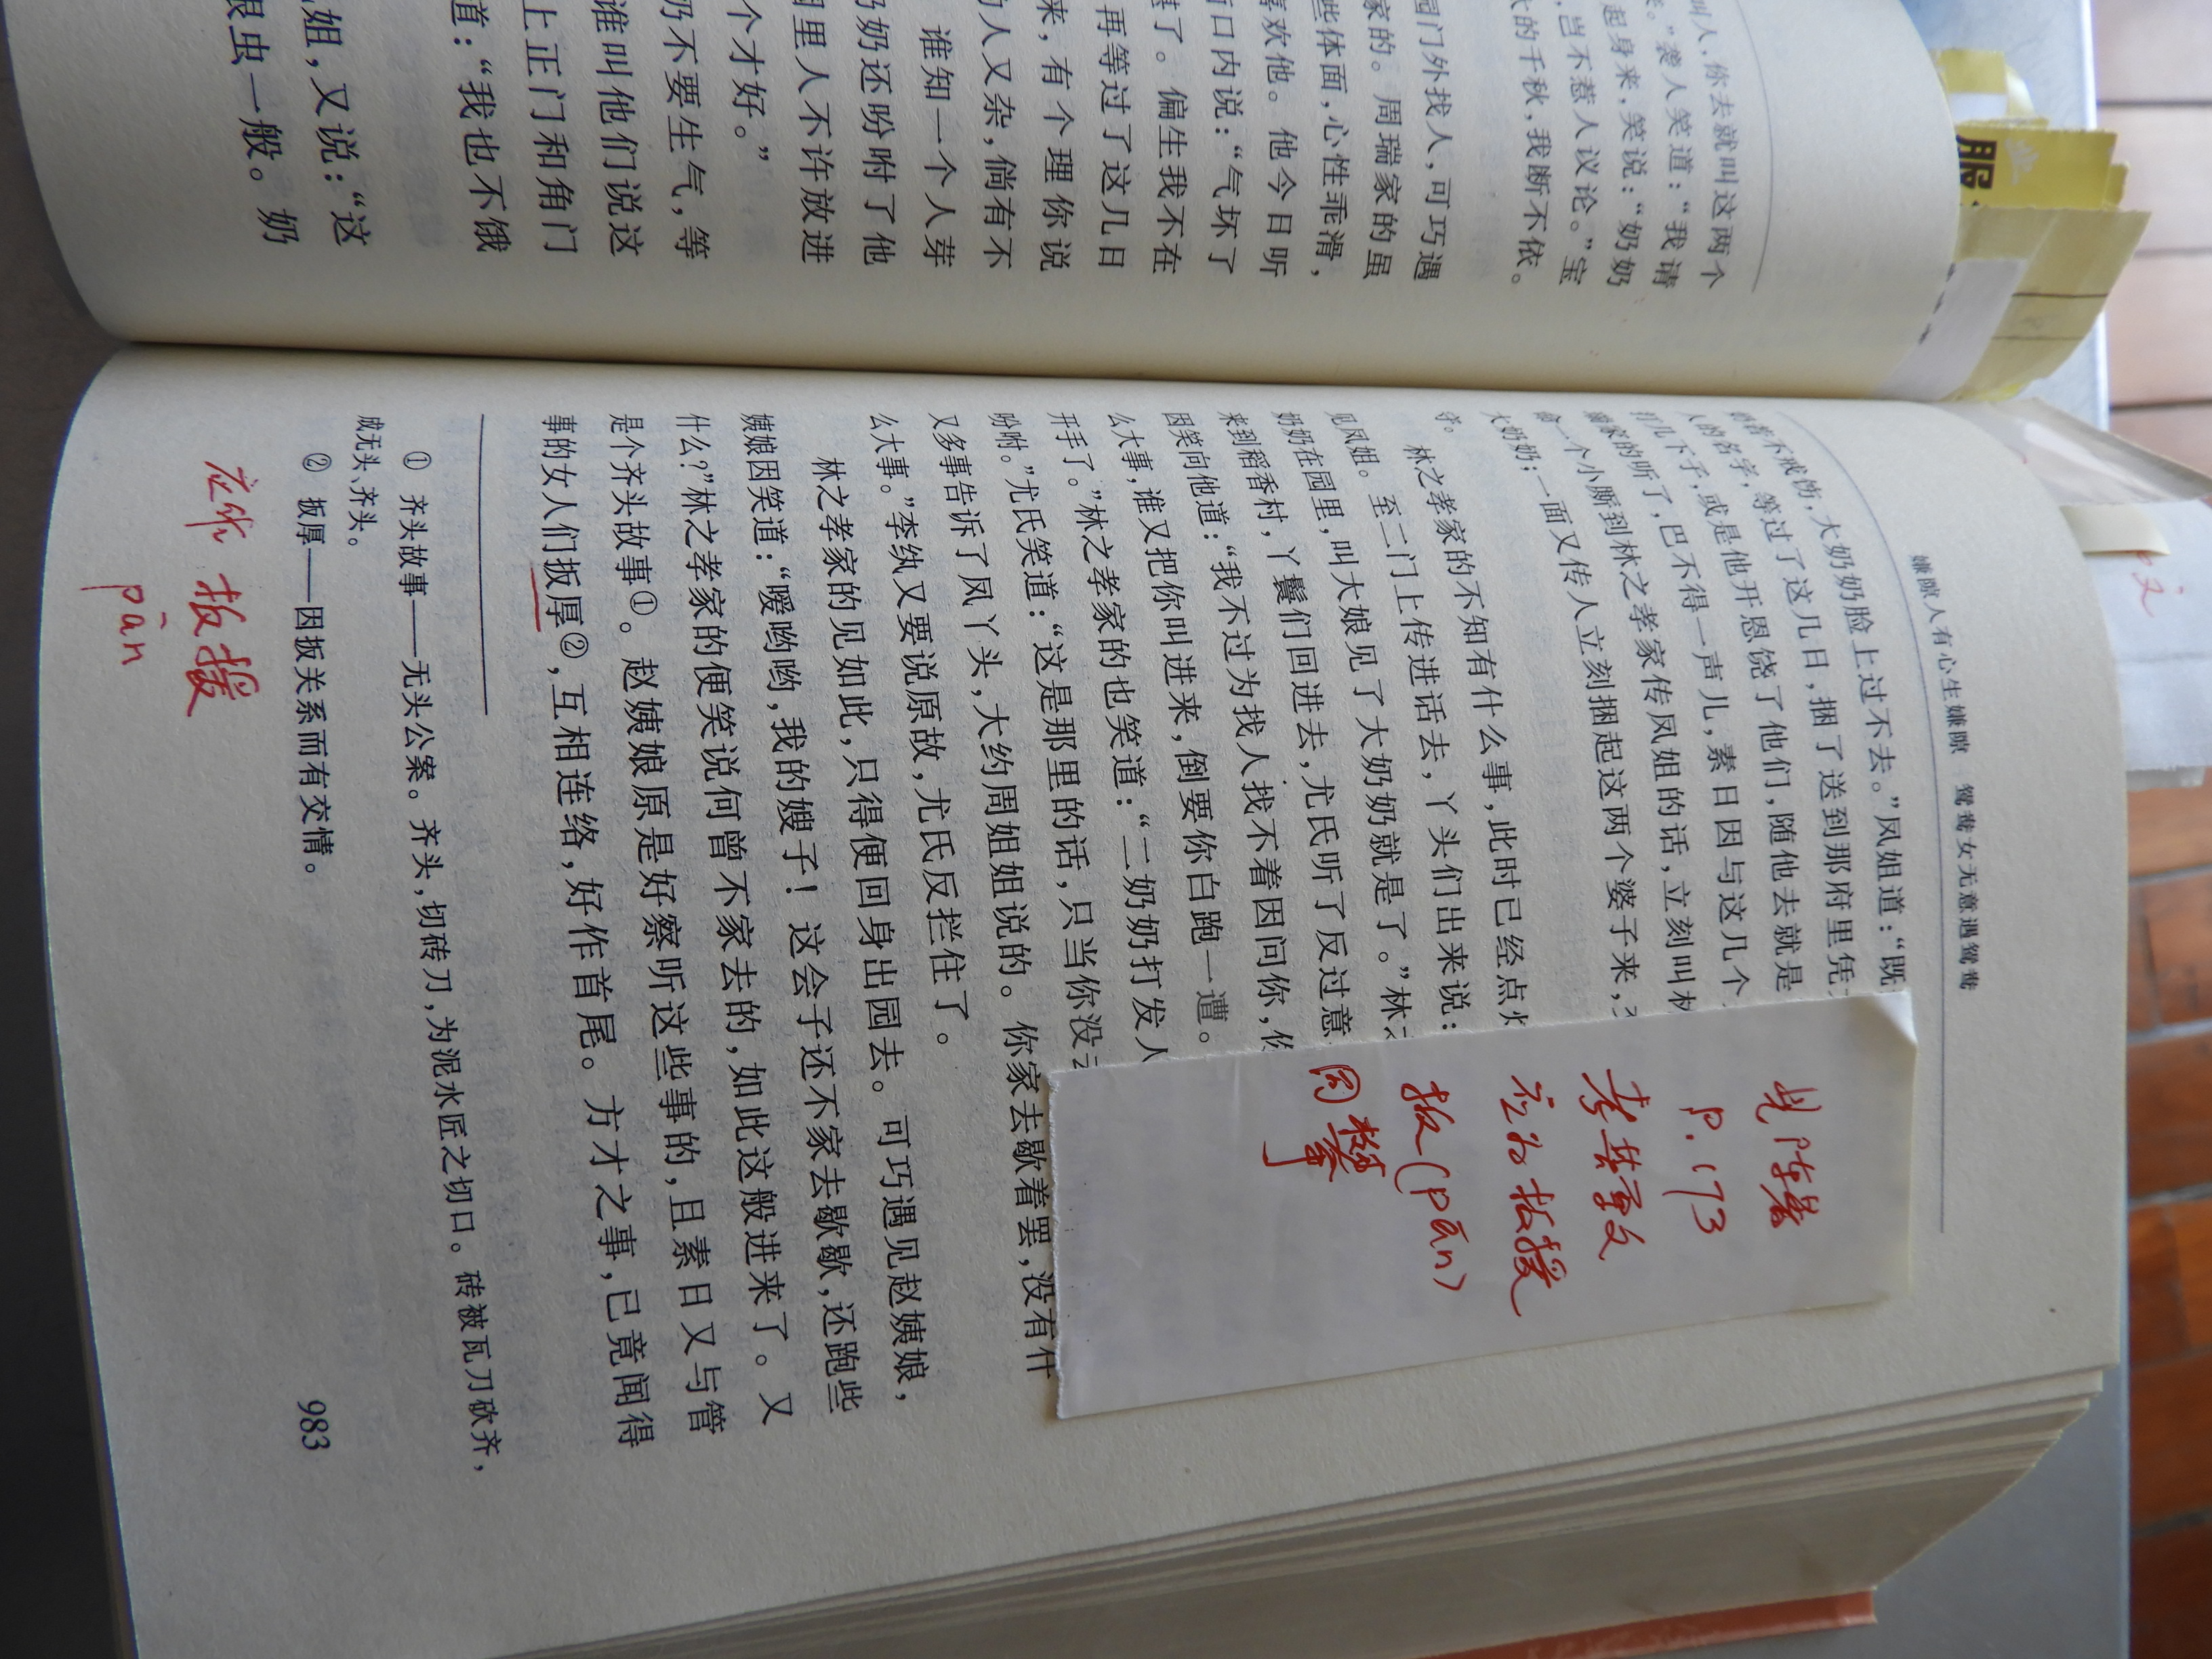 叫人,你去就叫这两个
。”袭人笑道:“我请
起身来,笑说:“奶奶
,岂不惹人议论。”宝
的千秋,我断不依。
园门外找人,可巧遇
家的。周瑞家的虽
些体面,心性乖滑,
喜欢他。他今日听
口内说:“气坏了
了。偏生我不在
再等过了这几日
来,有个理你说
人又杂,倘有不
谁知一个人芽
奶还吩咐了他
里人不许放进
个才好。”
奶不要生气,等
谁叫他们说这
上正门和角门
道:“我也不饿
姐,又说:“这
虫一般。奶
服
嫌隙人有心生嫌隙 鸳鸯女无意遇鸳鸯
不戒饬,大奶奶脸上过不去。”凤姐道:“既
人的名字,等过了这几日,捆了送到那府里凭
打几下子,或是他开恩饶了他们,随他去就是
家的听了,巴不得一声儿,素日因与这几个
命一个小厮到林之孝家传凤姐的话,立刻叫林
大奶奶;一面又传人立刻捆起这两个婆子来,
守。
林之孝家的不知有什么事,此时已经点
见凤姐。至二门上传进话去,丫头们出来说:
奶奶在园里,叫大娘见了大奶奶就是了。”林
来到稻香村,丫鬟们回进去,尤氏听了反过意
因笑向他道:“我不过为找人找不着因问你,
么大事,谁又把你叫进来,倒要你白跑一遭。
开手了。”林之孝家的也笑道:“二奶奶打发人
吩咐。”尤氏笑道:“这是那里的话,只当你没
又多事告诉了凤丫头,大约周姐姐说的。你家去歇着罢,没有什
么大事。”李纨又要说原故,尤氏反拦住了。
林之孝家的见如此,只得便回身出园去。可巧遇见赵姨娘,
姨娘因笑道:“嗳哟哟,我的嫂子!这会子还不家去歇歇,还跑些
什么?”林之孝家的便笑说何曾不家去的,如此这般进来了。又
是个齐头故事①。赵姨娘原是好察听这些事的,且素日又与管
事的女人们扳厚②,互相连络,好作首尾。方才之事,已竟闻得
① 齐头故事——无头公案。齐头,切砖刀,为泥水匠之切口。砖被瓦刀砍齐,
成无头、齐头。
② 扳厚——因扳关系而有交情。
983
应作 扳援
pān
见陈著
P.173
考其原文
应为扳援
扳(pān)
同攀